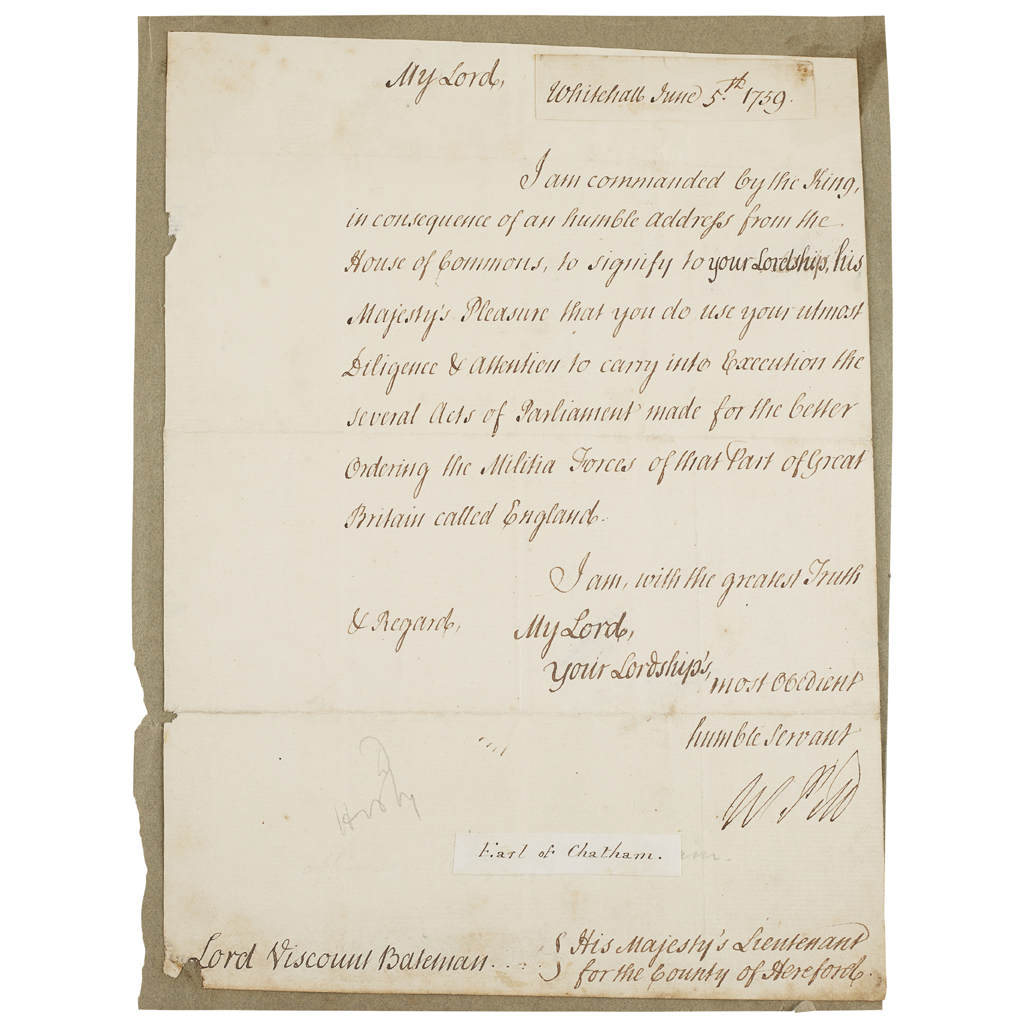 My Lord,
Whitehall June 5.th 1759.
I am commanded by the King,
in consequence of an humble address from the
House of Commons, to signify to your Lordship, his
Majesty's Pleasure that you do use your utmost
Diligence & Attention to carry into Execution the
several Acts of Parliament made for the better
Ordering the Militia Forces of that Part of Great
Britain called England.
I am, with the greatest Truth
& Regard,
My Lord,
Your Lordship's,
most Obedient
humble Servant
W Pitt
Earl of Chatham.
Lord Viscount Bateman....
His Majesty's Lieutenant
for the County of Hereford.